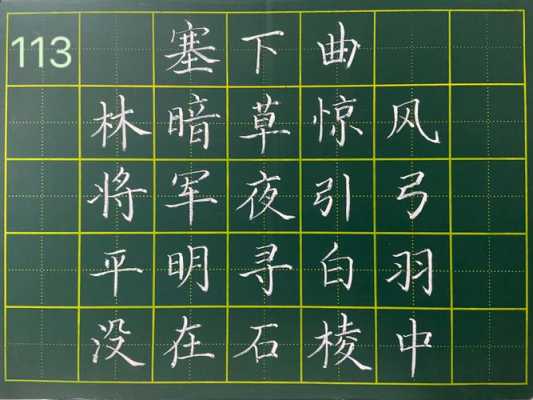 113 塞下曲
林暗草惊风
将军夜引弓
平明寻白羽
没在石棱中